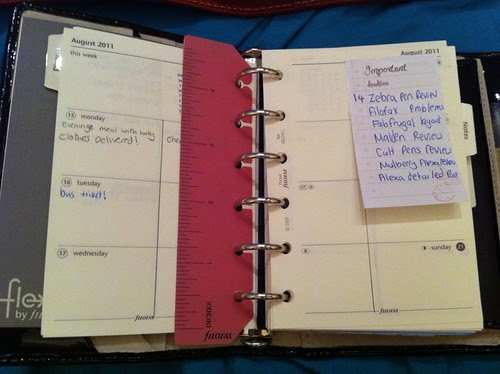 August 2011
this week
15 monday
evenings meal with baby
clothes delivered!
16 tuesday
bus ticket!
17 wednesday
flex
by filofax
INCHES
FILOFAX
August 2011
Important
deadline
14 Zebra Pen Review
Filofax Problems
FabFrugal layout
Malden Review
Cult Pens Review
Mulberry Alexa
Alexa detailed
Notes
filofax
sunday 21
filofax